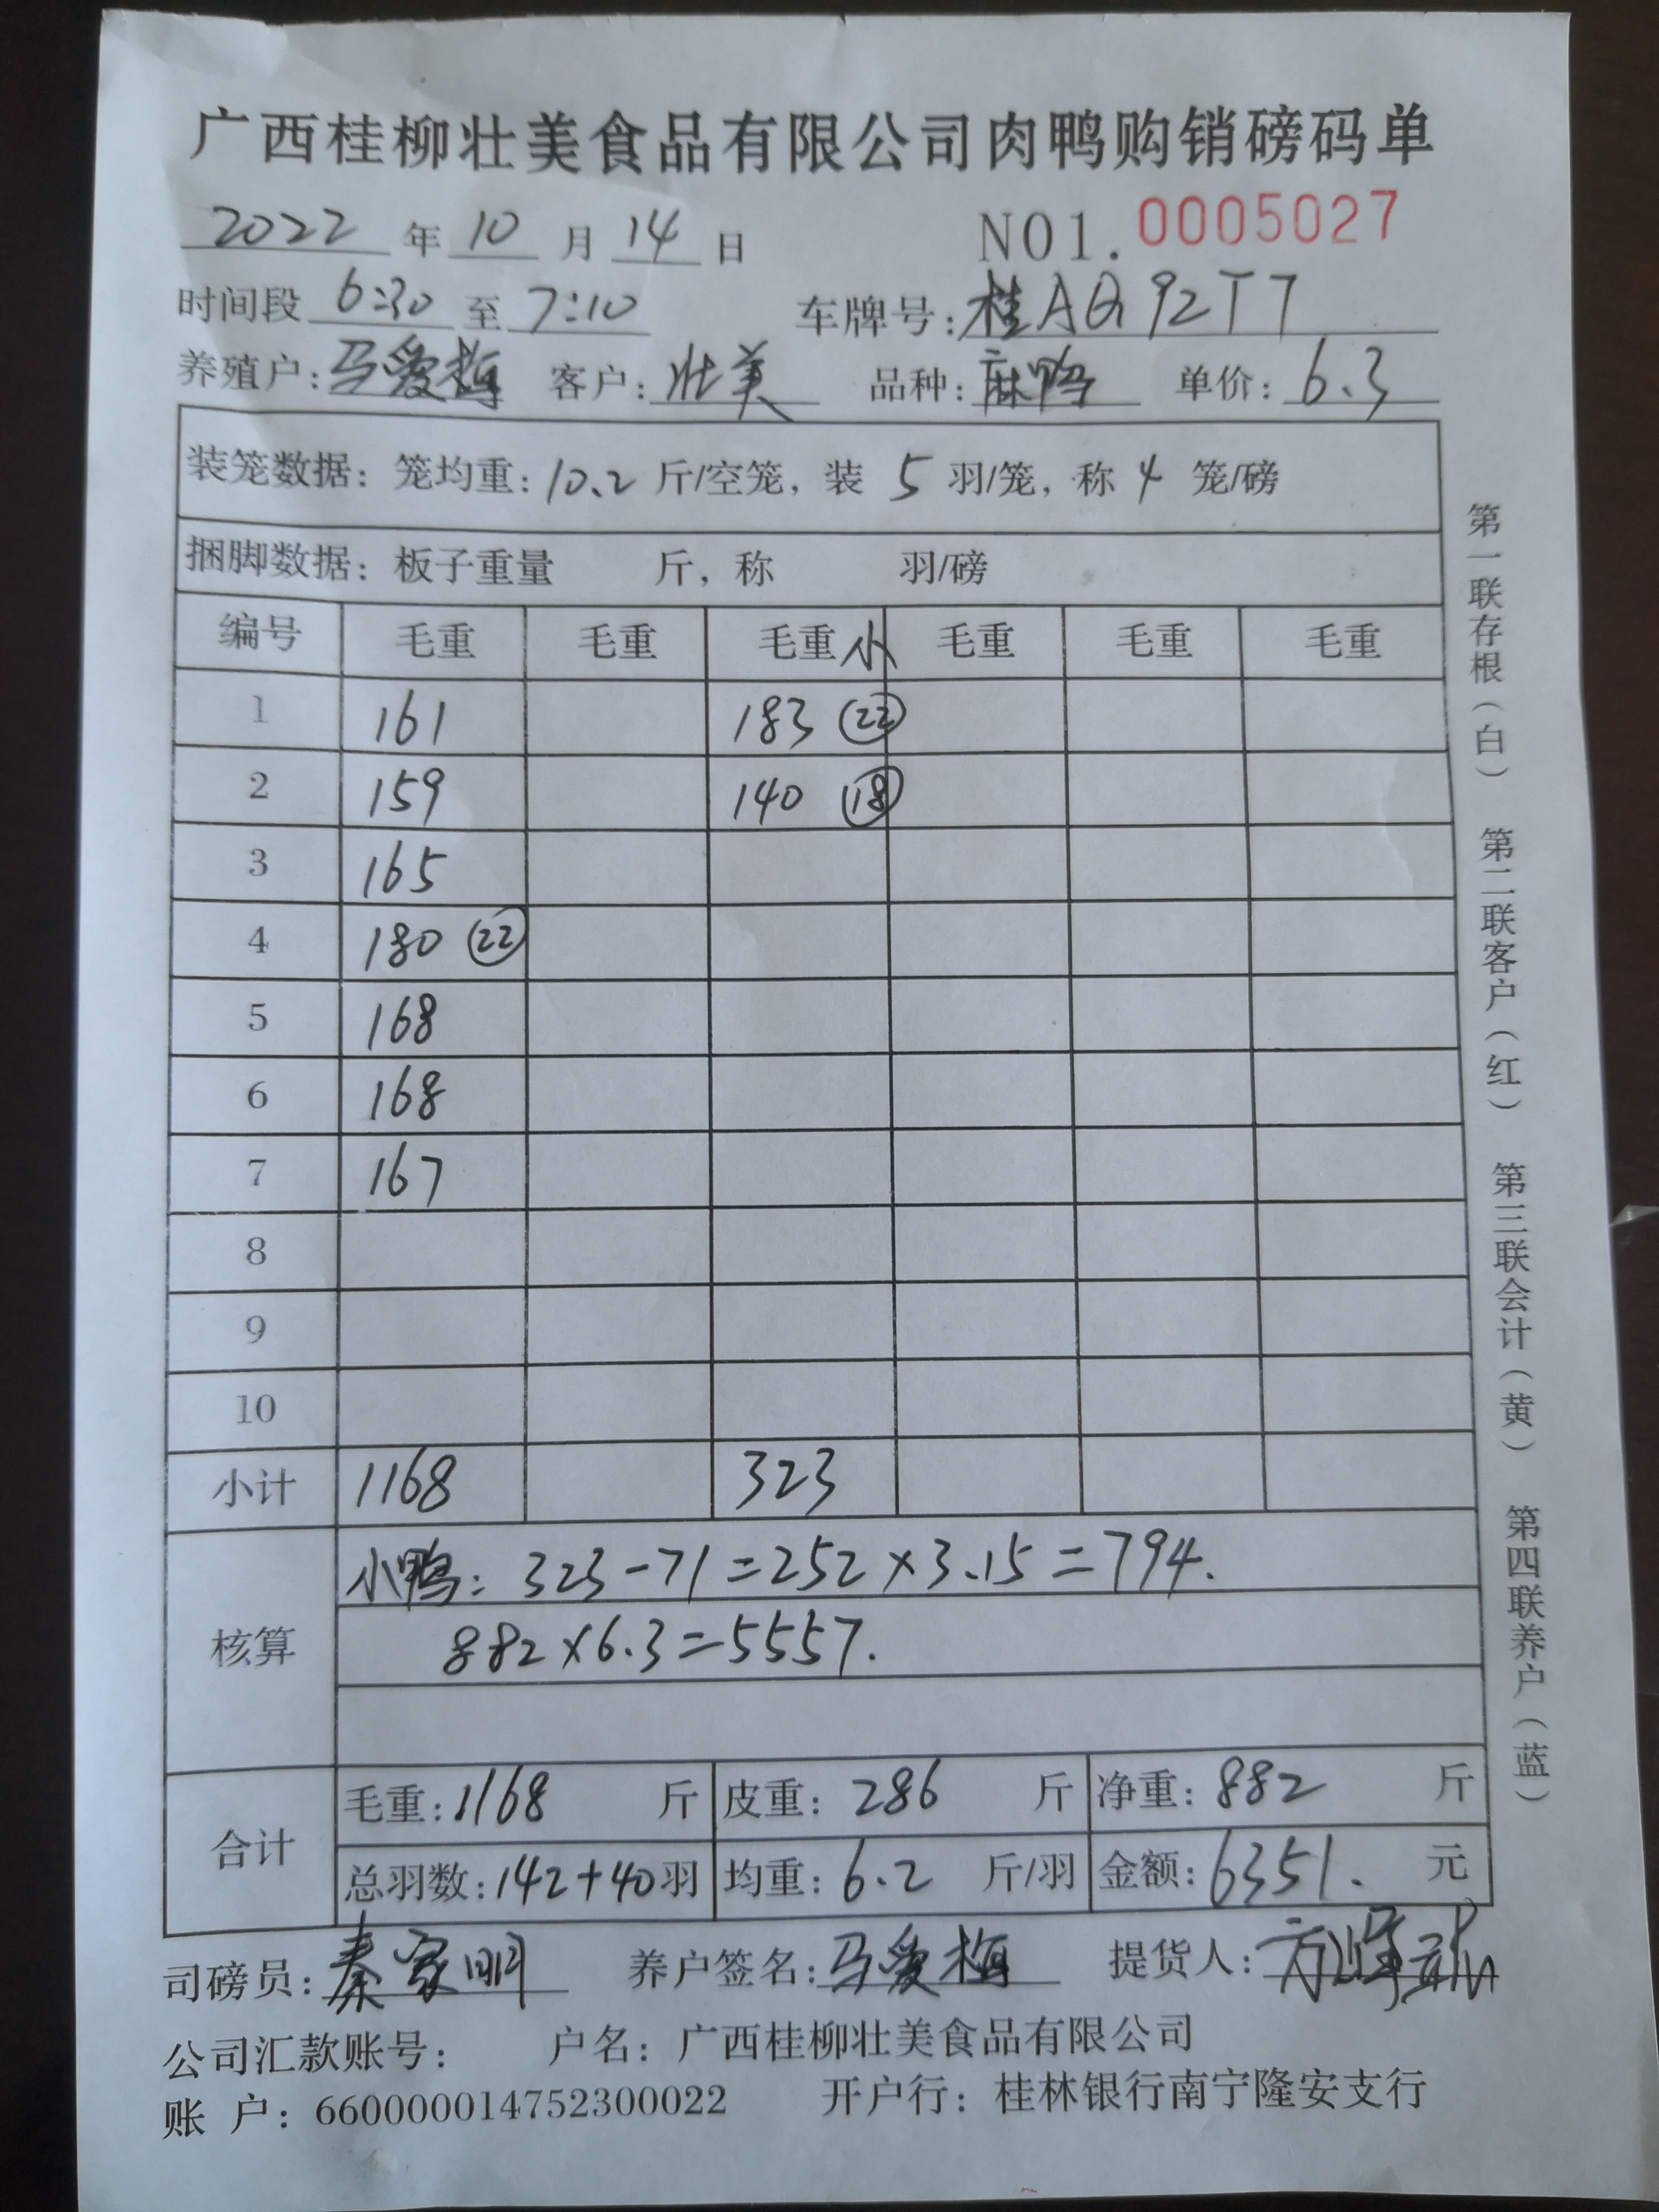 广西桂柳壮美食品有限公司肉鸭购销磅码单
2022 年 10 月 14 日 NO1. 0005027
时间段 6:30 至 7:10 车牌号: 桂AQ92T7
养殖户: 马爱梅 客户: 壮美 品种: 麻鸭 单价: 6.3
装笼数据: 笼均重: 10.2 斤/空笼, 装 5 羽/笼, 称 4 笼/磅
捆脚数据: 板子重量 斤, 称 羽/磅
编号 毛重 毛重 毛重 小 毛重 毛重 毛重
1 161 183 (22)
2 159 140 (18)
3 165
4 180 (22)
5 168
6 168
7 167
8
9
10
小计 1168 323
核算 小鸭: 323-71=252×3.15=794.
882×6.3=5557.
合计 毛重: 1168 斤 皮重: 286 斤 净重: 882 斤
总羽数: 142+40 羽 均重: 6.2 斤/羽 金额: 6351. 元
司磅员: 秦家明 养户签名: 马爱梅 提货人:
公司汇款账号: 户名: 广西桂柳壮美食品有限公司
账 户: 660000014752300022 开户行: 桂林银行南宁隆安支行
第一联存根(白) 第二联客户(红) 第三联会计(黄) 第四联养户(蓝)